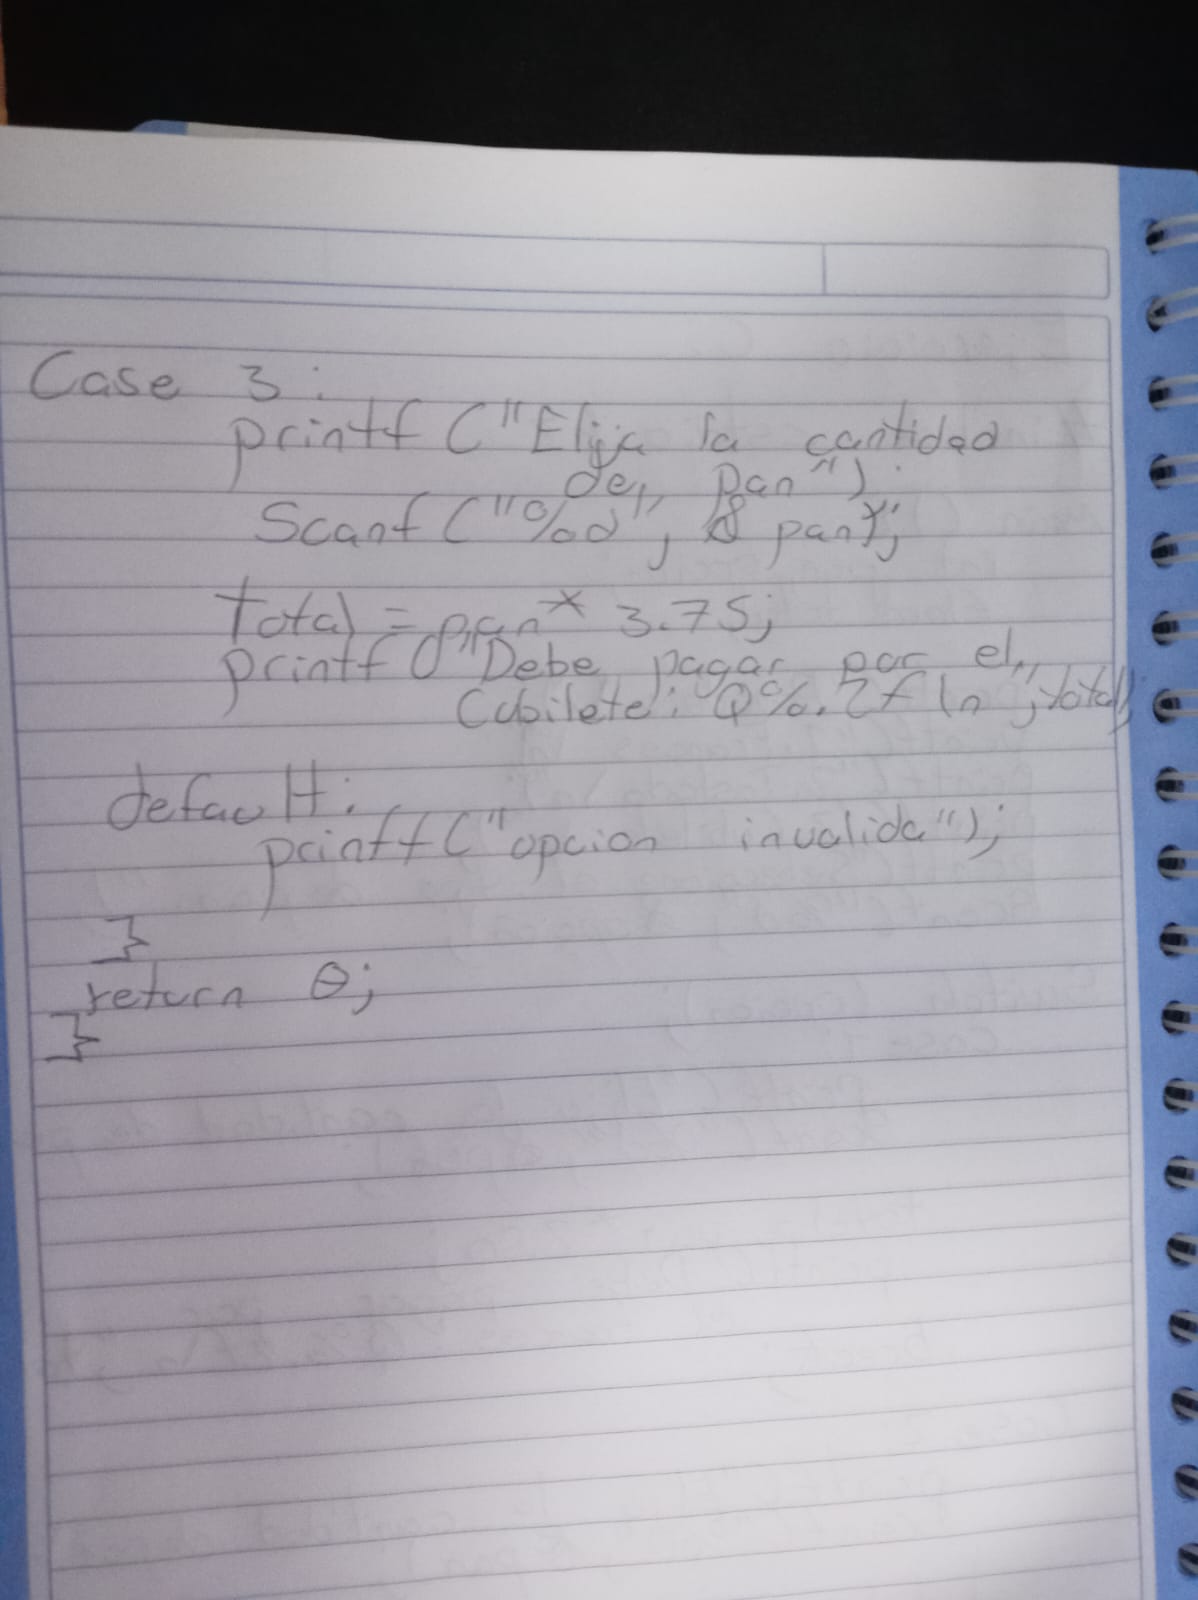 Case 3:
printf ("Elija la cantidad
de pan")
Scanf ("%d", & pan);
total = pan * 3.75;
printf ("Debe pagar por el
Cubilete: Q%.2f \n", total);
default:
printf ("opcion invalida");
}
return 0;
}